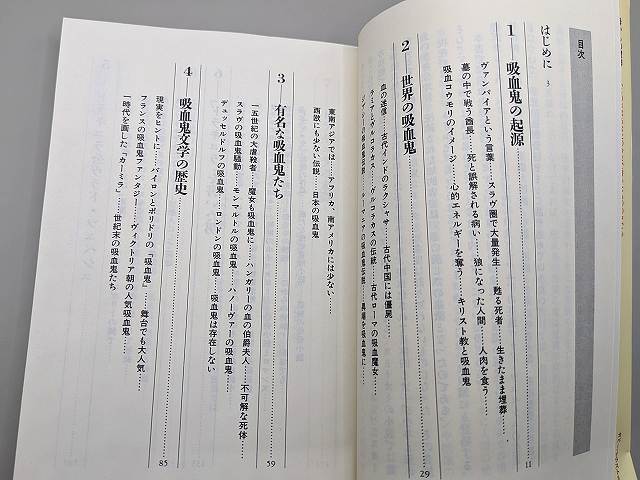 目次
はじめに 3
1――吸血鬼の起源 11
ヴァンパイアという言葉……スラヴ圏で大量発生……甦る死者……生きたまま埋葬……
墓の中で戦う酋長……死と誤解される病い……狼になった人間……人肉を食う……
吸血コウモリのイメージ……心的エネルギーを奪う……キリスト教と吸血鬼
2――世界の吸血鬼 29
血の迷信……古代インドのラクシャサ……古代中国には僵屍……
ラミアとヴルコラカス……ヴルコラカスの伝統……古代ローマの吸血魔女
東南アジアでは……アフリカ、南アメリカには少ない……
西欧にも少ない伝説……日本の吸血鬼
3――有名な吸血鬼たち 59
一五世紀の大虐殺者……魔女も吸血鬼に……ハンガリーの血の伯爵夫人……不可解な死体……
スラヴの吸血鬼騒動……モンマルトルの吸血鬼……ハノーヴァーの吸血鬼……
デュッセルドルフの吸血鬼……ロンドンの吸血鬼……吸血鬼は存在しない
4――吸血鬼文学の歴史 85
現実をヒントに……バイロンとポリドリの「吸血鬼」……舞台でも大人気……
フランスの吸血鬼ファンタジー……ヴィクトリア朝の人気吸血鬼……
一時代を画した「カーミラ」……世紀末の吸血鬼たち